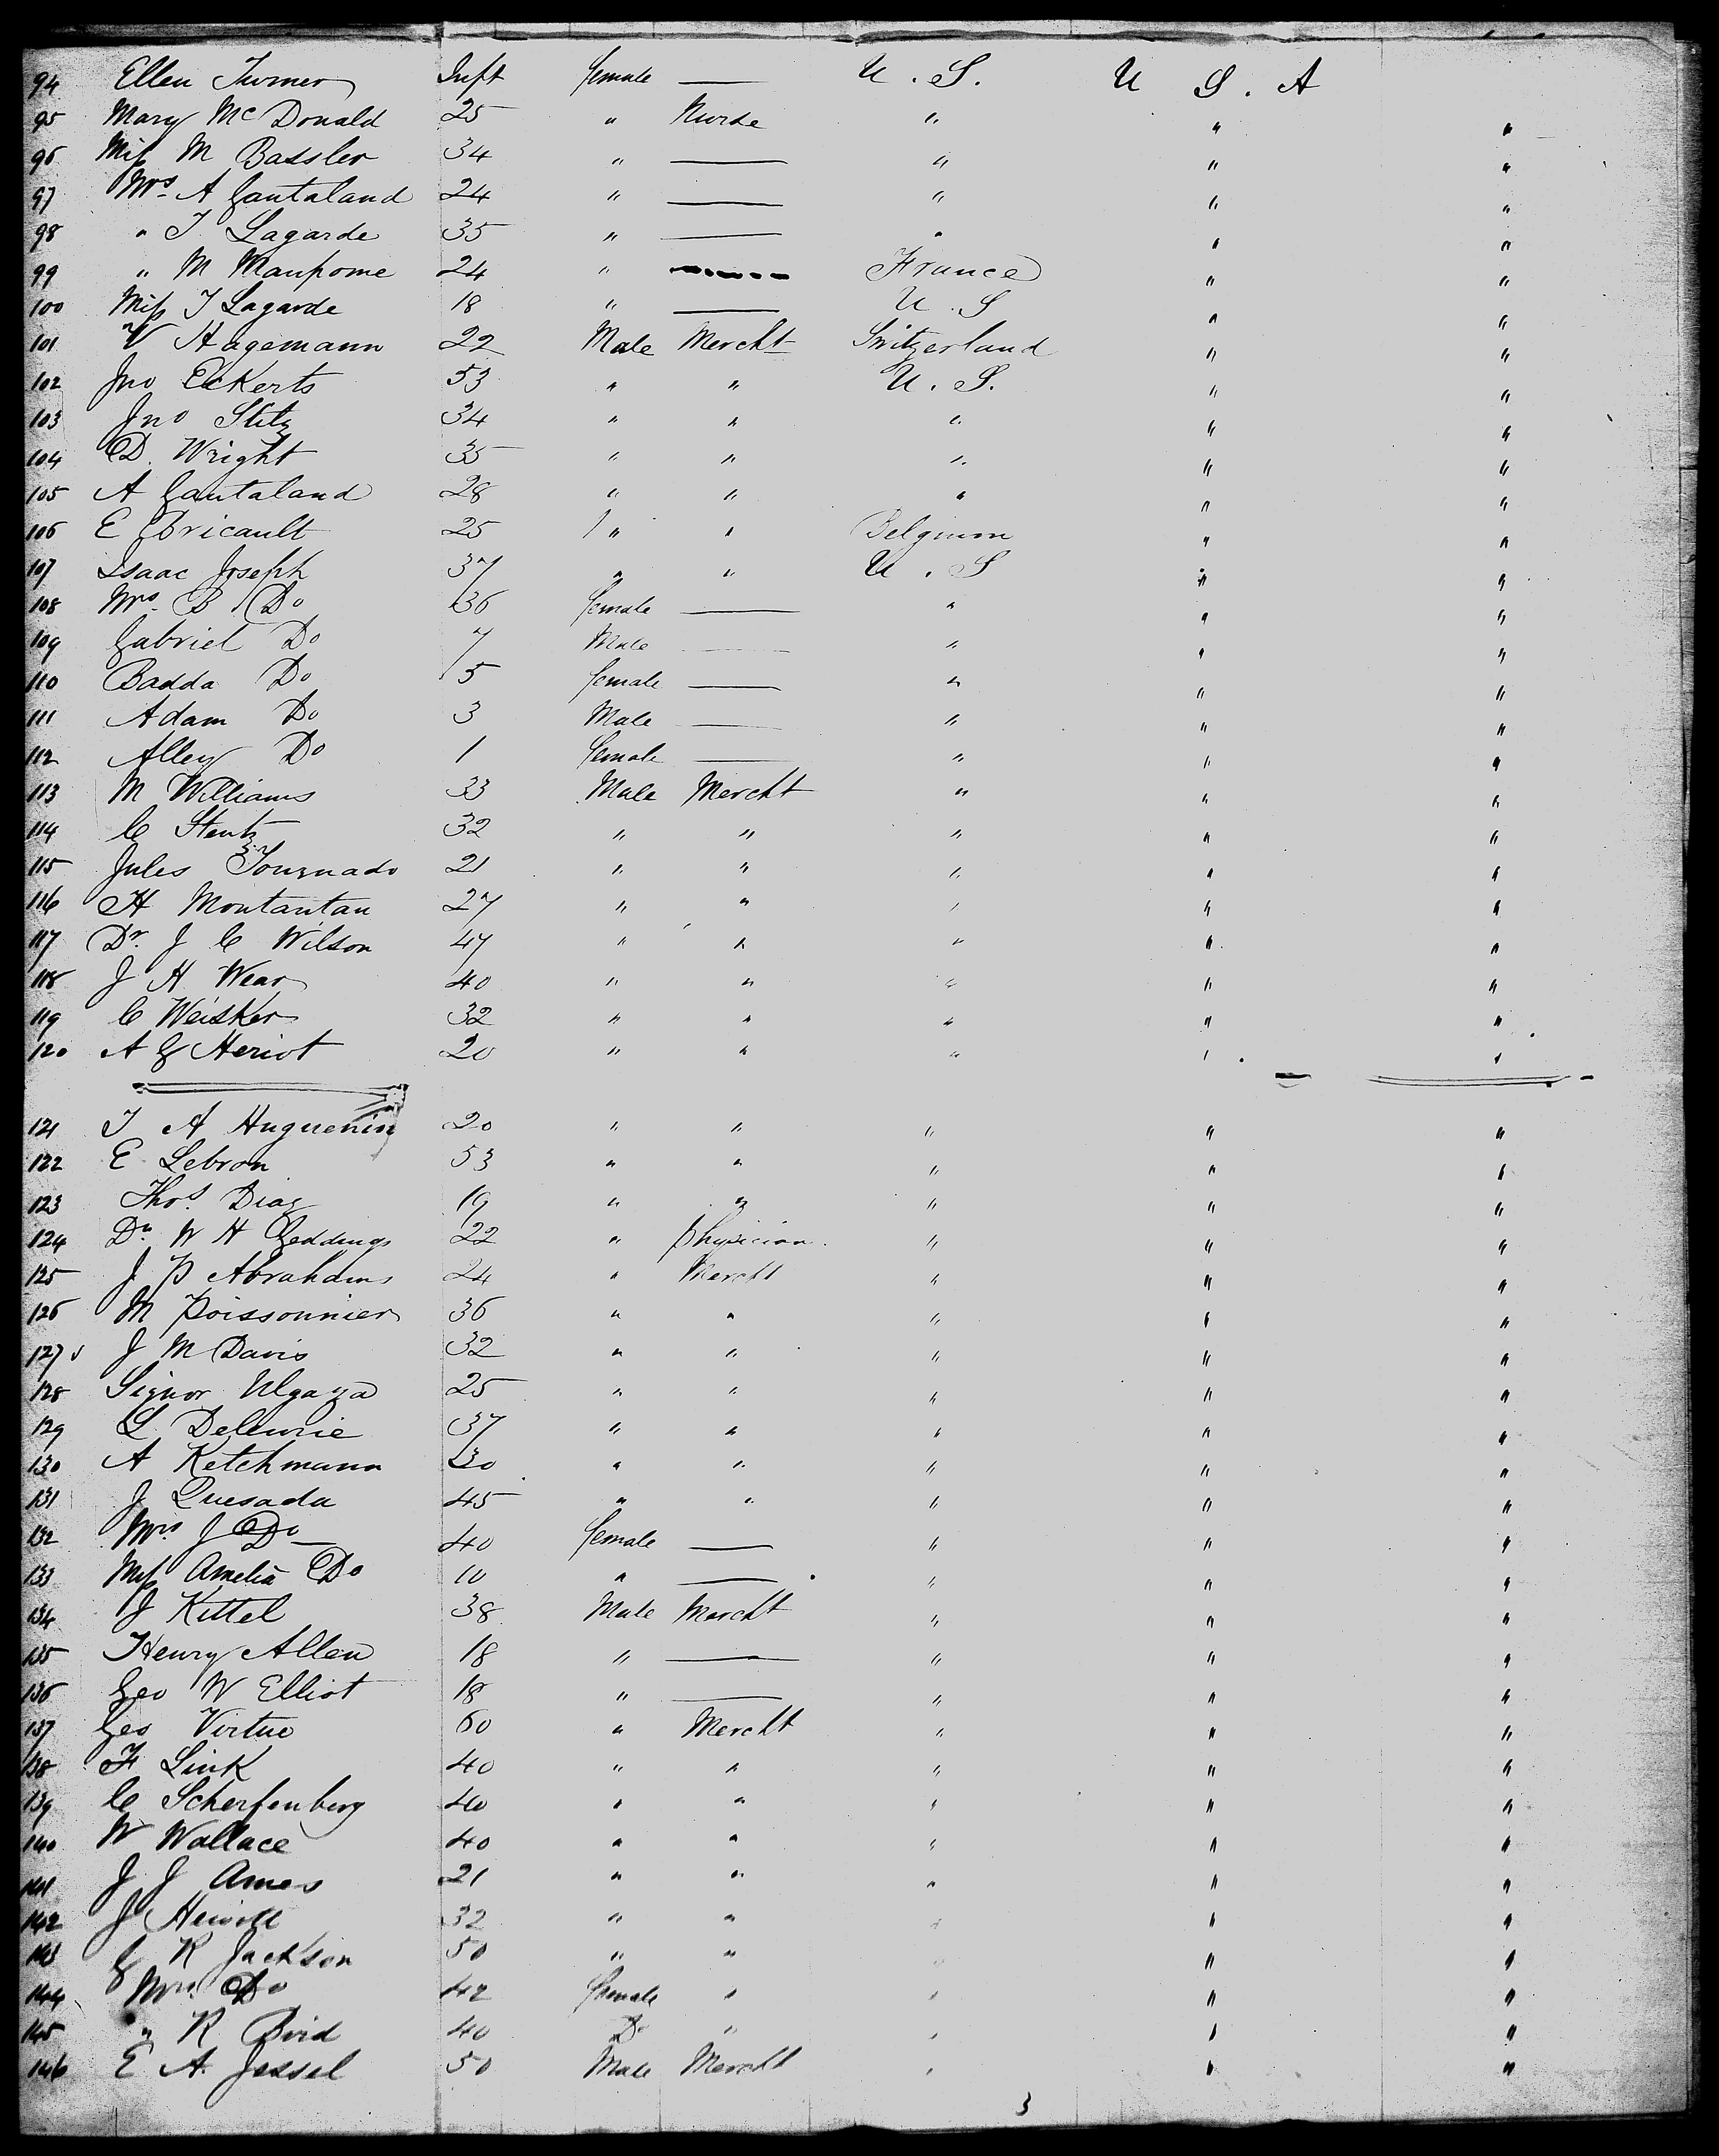 94 Ellen Turner Inft female — U. S. U S. A
95 Mary McDonald 25 " Nurse " " "
96 Miss M Bassler 34 " — " " "
97 Mrs A Gantaland 24 " — " " "
98 " T Lagarde 35 " — " " "
99 " M Maupome 24 " — France " "
100 Miss T Lagarde 18 " — U. S " "
101 V Hagemann 22 Male Mercht Switzerland " "
102 Jno Eckerts 53 " " U. S. " "
103 Jno Stitz 34 " " " " "
104 D. Wright 35 " " " " "
105 A Gantaland 28 " " " " "
106 E Bricault 25 " " Belgium " "
107 Isaac Joseph 37 " " U. S " "
108 Mrs B Do 36 female — " " "
109 Gabriel Do 7 Male — " " "
110 Badda Do 5 female — " " "
111 Adam Do 3 Male — " " "
112 Alley Do 1 female — " " "
113 M Williams 33 Male Mercht " " "
114 C Stentz 32 " " " " "
115 Jules Tournado 21 " " " " "
116 H Montantan 27 " " " " "
117 Dr. J C Wilson 47 " " " " "
118 J H Wear 40 " " " " "
119 C Weisker 32 " " " " "
120 A G Heriot 20 " " " " "
121 T A Huguenin 20 " " " " "
122 E Lebron 53 " " " " "
123 Thos. Diaz 19 " " " " "
124 Dr W H Geddings 22 " Physician " " "
125 J P Abrahams 24 " Mercht " " "
126 M Poissonnier 36 " " " " "
127 J M Davis 32 " " " " "
128 Signor 25 " " " " "
129 L 37 " " " " "
130 A Ketchmann 30 " " " " "
131 J Quesada 45 " " " " "
132 Mrs J Do 40 female — " " "
133 Miss Amelia Do 10 " — " " "
134 J Kittel 38 Male Mercht " " "
135 Henry Allen 18 " — " " "
136 Geo W Elliot 18 " — " " "
137 Geo Virtue 60 " Mercht " " "
138 F Link 40 " " " " "
139 C Scherfenberg 40 " " " " "
140 W Wallace 40 " " " " "
141 J J Ames 21 " " " " "
142 J Hewitt 32 " " " " "
143 G R Jackson 50 " " " " "
144 Mrs Do 42 female " " " "
145 " R Bird 40 Do " " " "
146 E A. Jessel 50 Male Mercht " " "
3